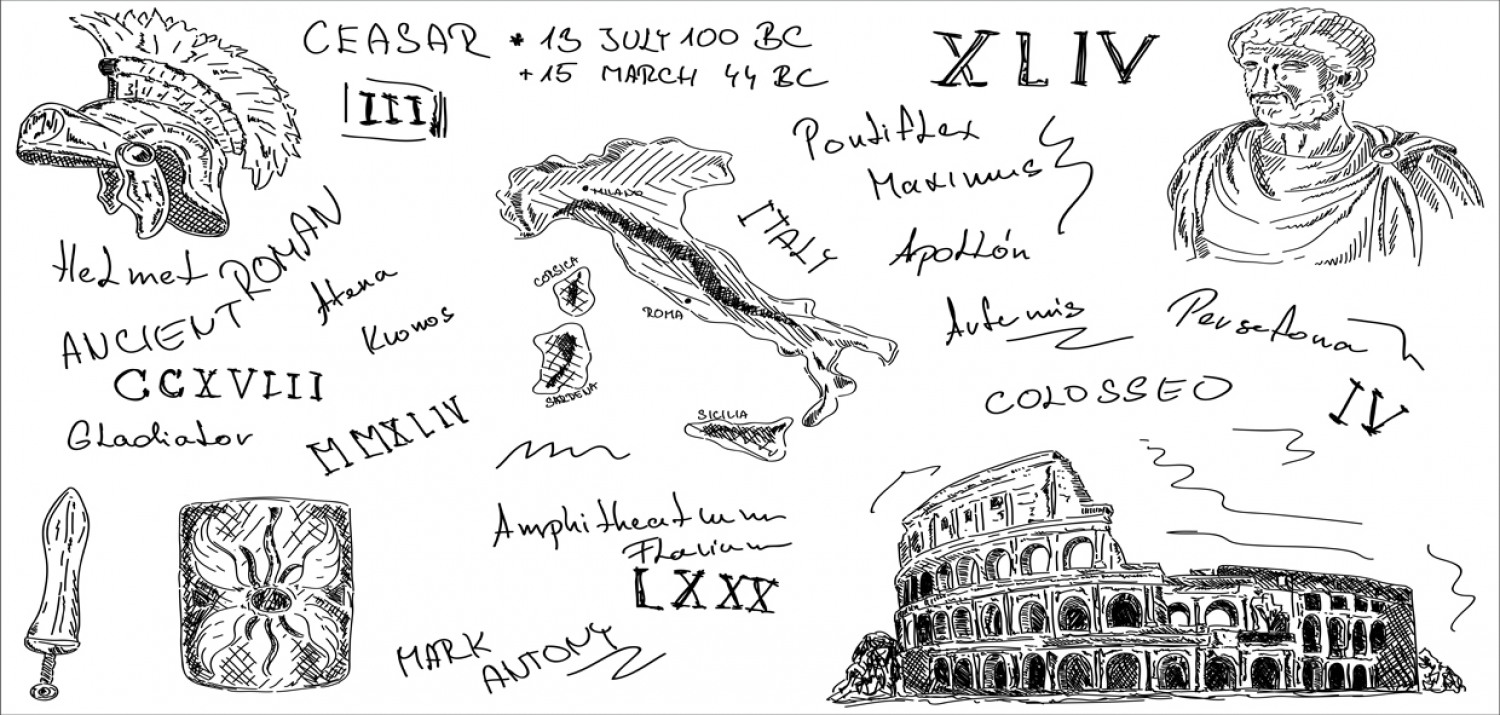 CEASAR * 13 JULY 100 BC
+ 15 MARCH 44 BC
III
XLIV
Pontiflex
Maximus
MILANO
ITALY
Apollón
Helmet
ANCIENT ROMAN
Atena
Kronos
CORSICA
ROMA
SARDENA
SICILIA
Artemis
Persefona
COLOSSEO
IV
CCXVIII
Gladiator
MMXLIV
Amphitheatrum
Flavium
LXXX
MARK
ANTONY